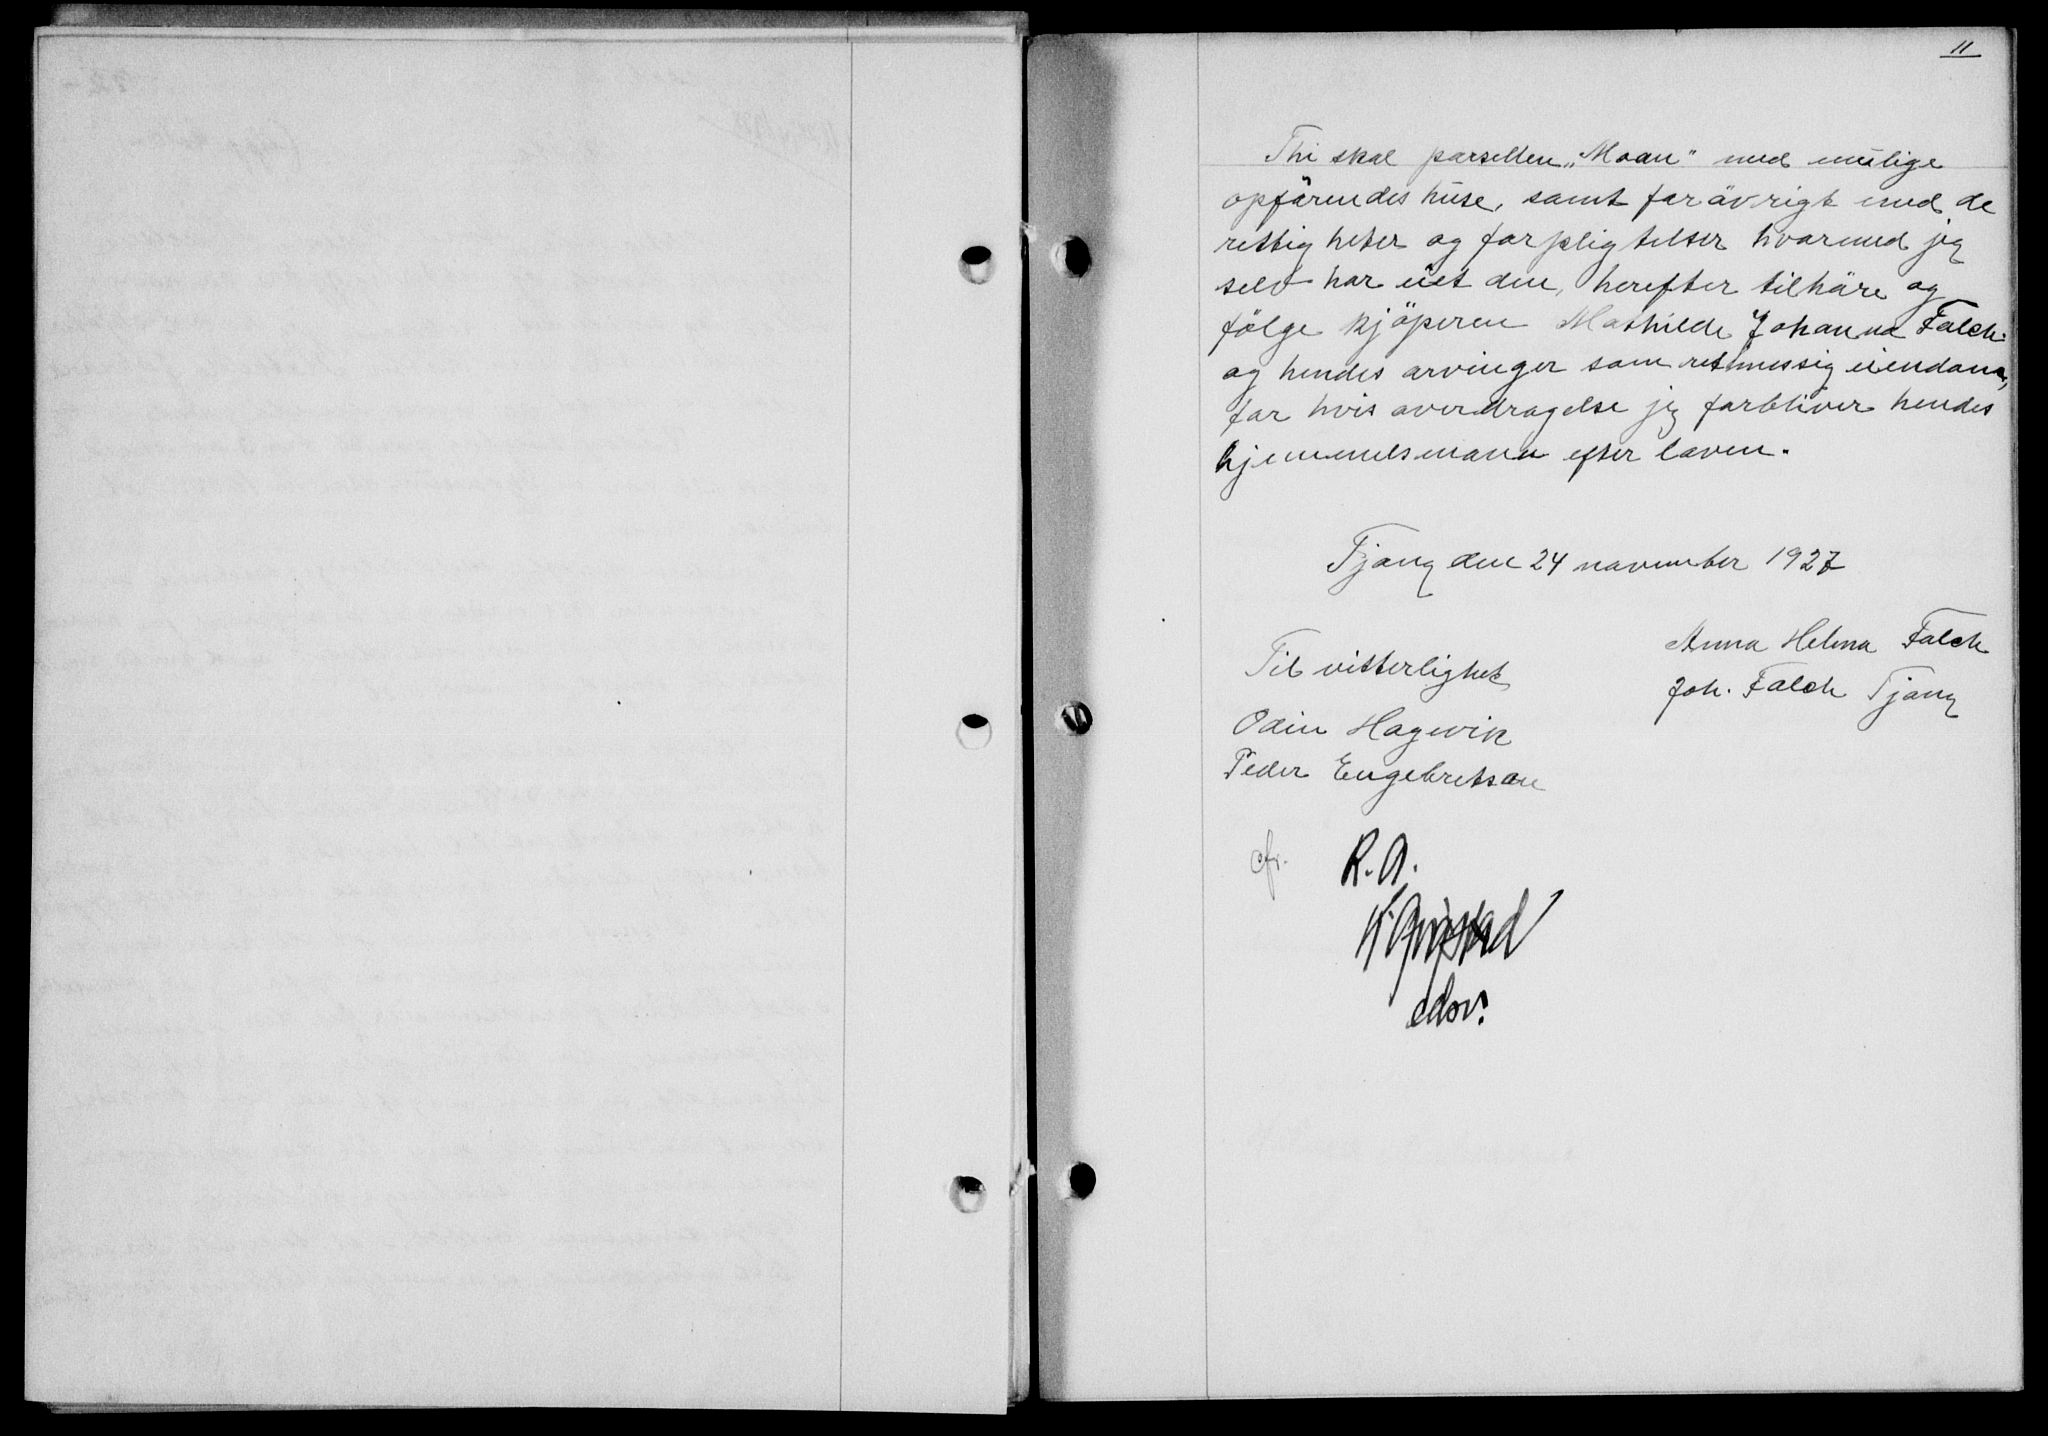 11
Thi skal parsellen „Moan" med mulige
opförendes huse, samt forövrigt med de
rettigheter og forpligtelser hvormed jeg
selv har eiet den, herefter tilhöre og
fölge kjöperen Mathilde Johanna Falch
og hendes arvinger som retmessig eiendom,
for hvis overdragelse jeg forbliver hendes
hjemmelsmann efter loven.
Tjong den 24 november 1927
Anna Helena Falch
Joh. Falch Tjong
Til vitterlighet
Odin Hagevik
Peder Engebretson
cfr. R.A.